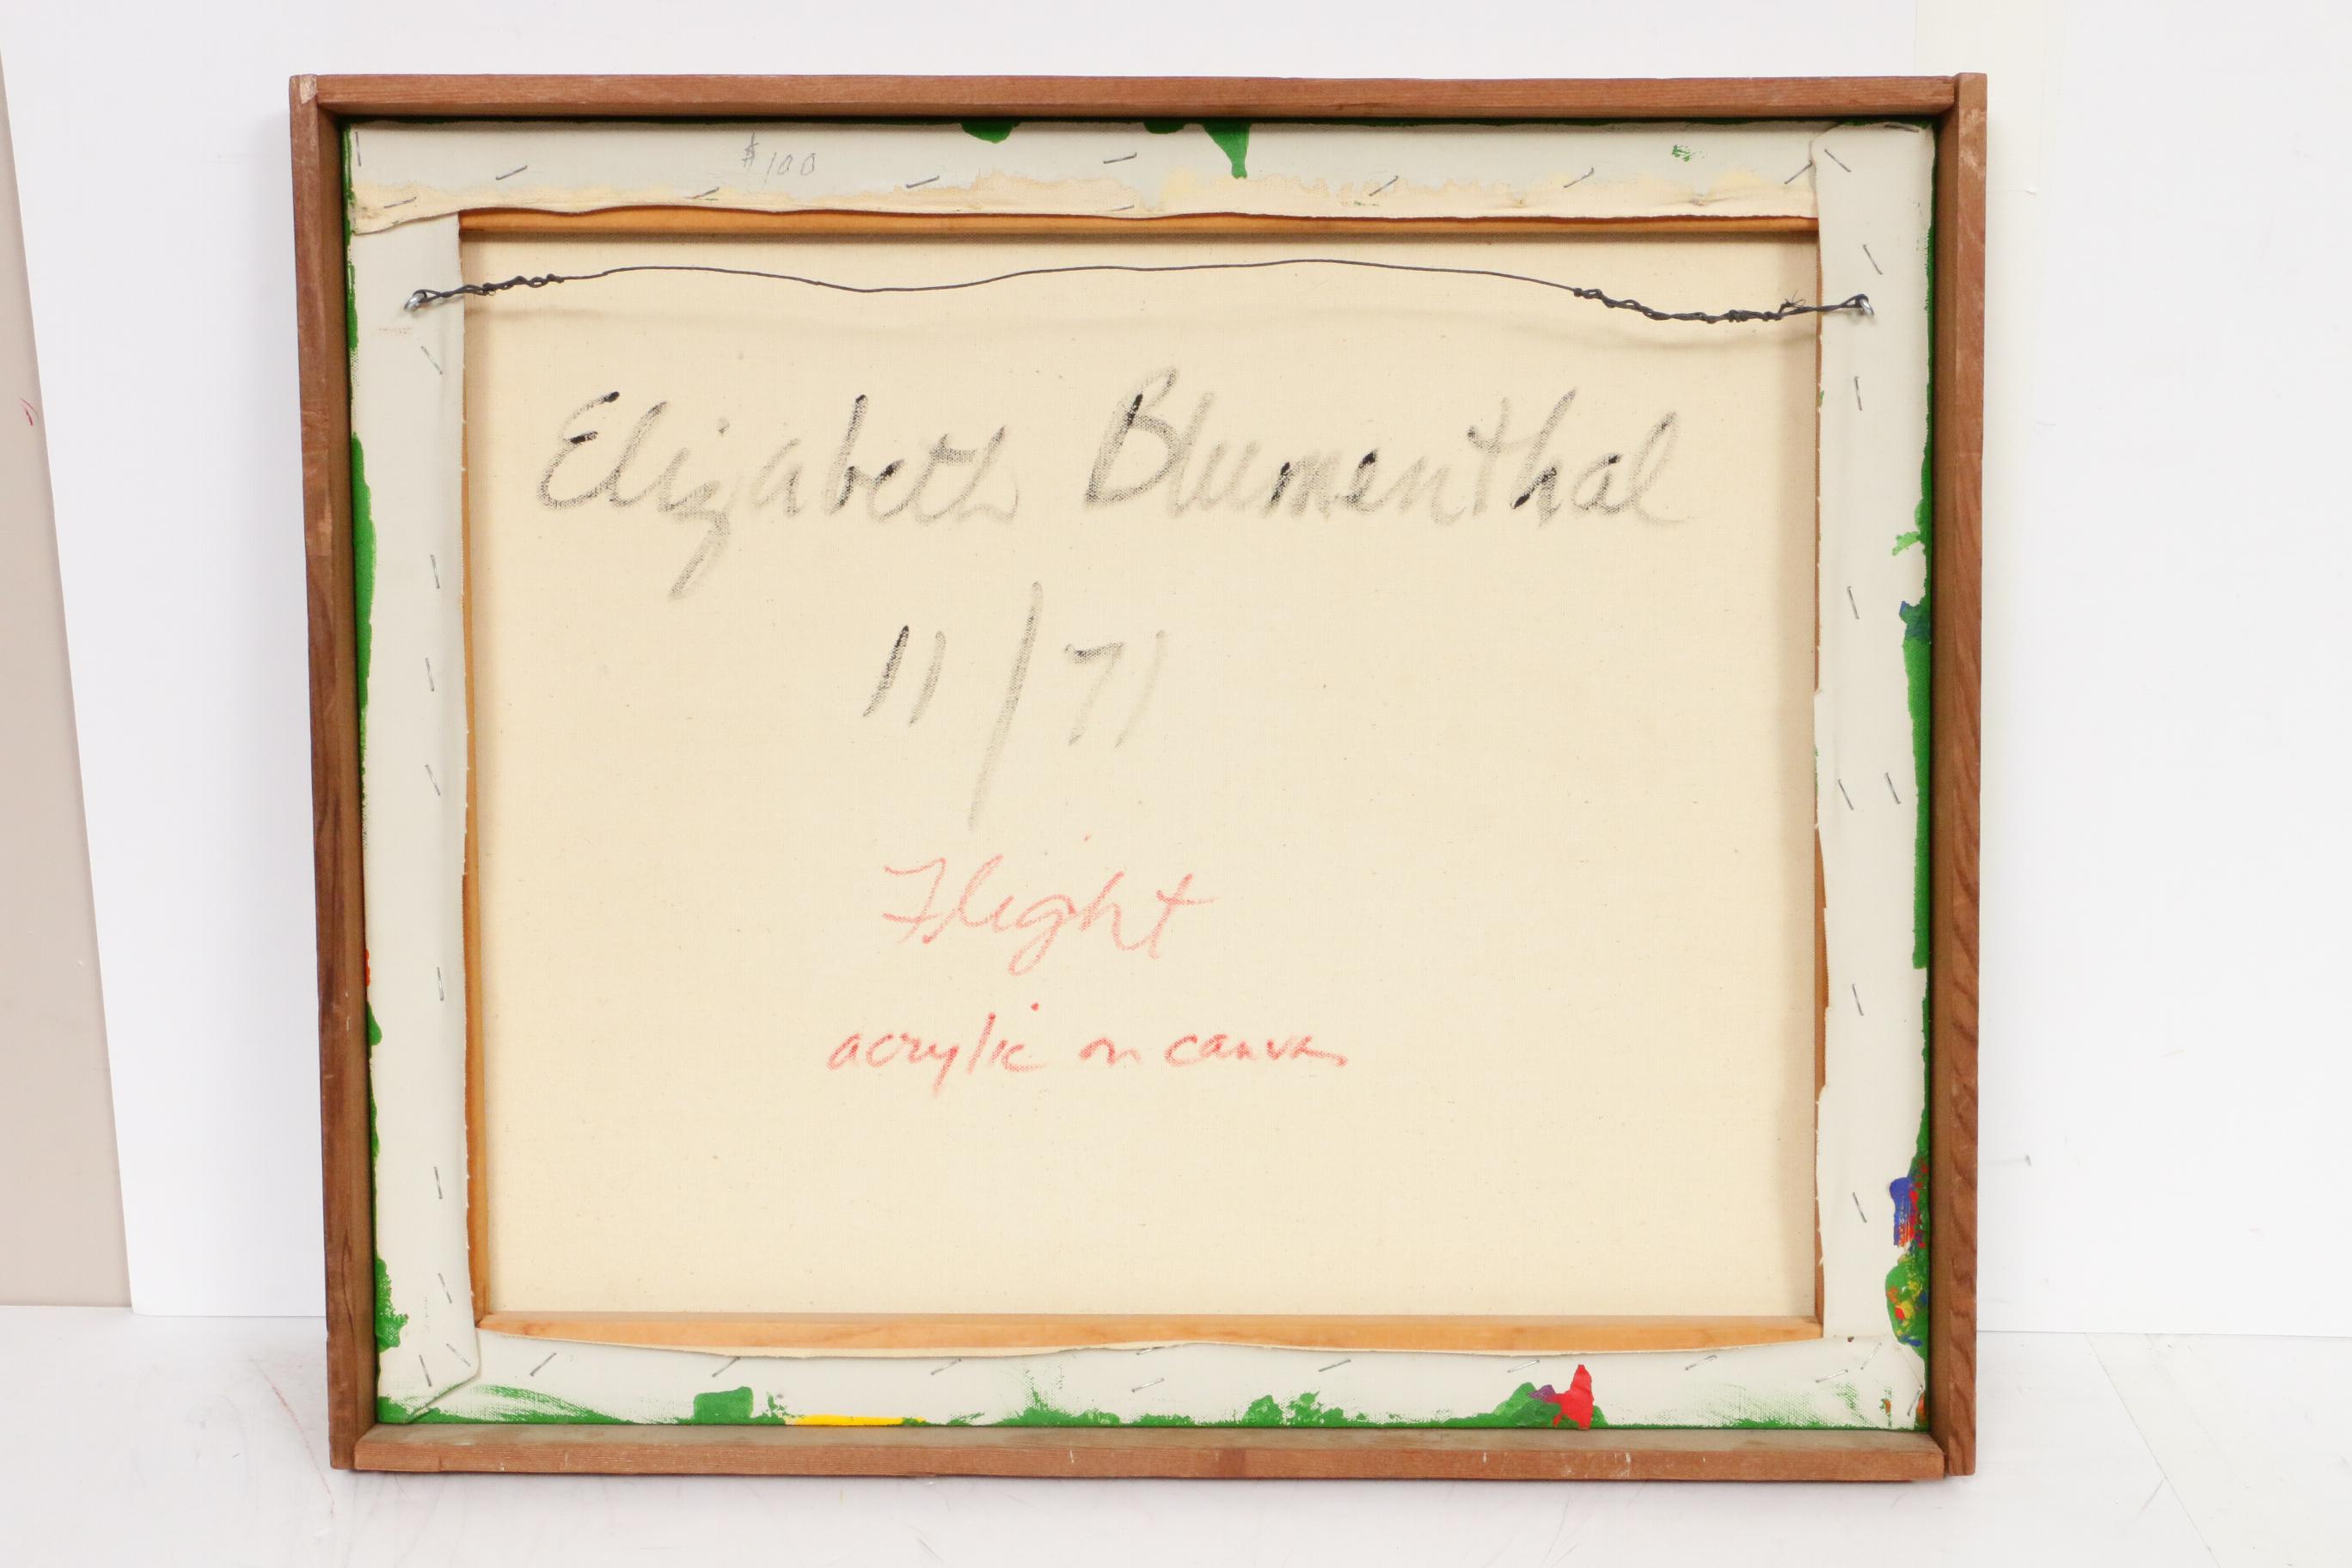 $100
Elizabeth Blumenthal
11/71
Flight
acrylic on canvas